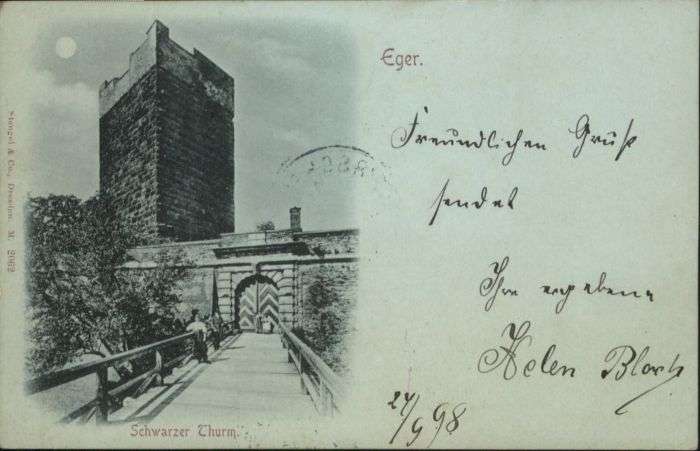 Eger.
Freundlichen Gruß
sendet
Ihre ergebene
Helen Bloch
24/9 98
Schwarzer Thurm.
Stengel & Co., Dresden. M. 2062